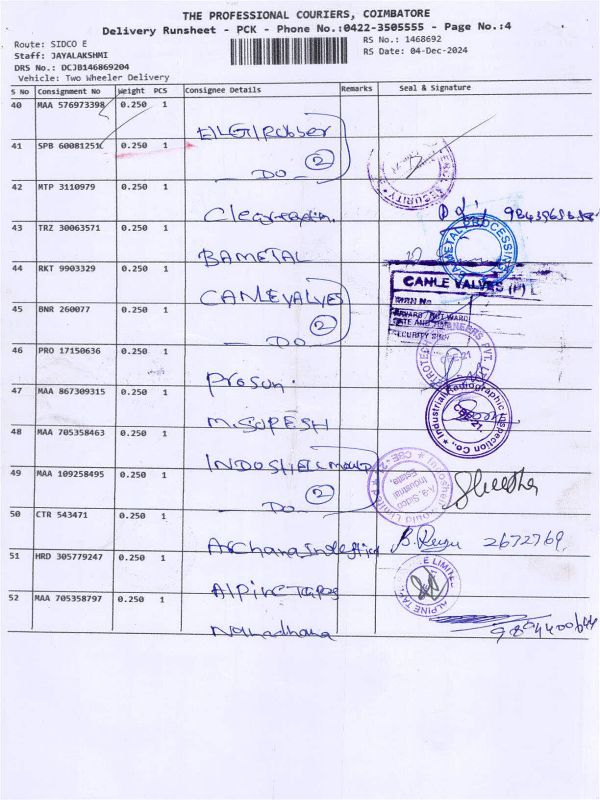 THE PROFESSIONAL COURIERS, COIMBATORE
Delivery Runsheet - PCK - Phone No.:0422-3505555 - Page No.:4
Route: SIDCO E
RS No.: 1468692
Staff: JAYALAKSHMI
RS Date: 04-Dec-2024
DRS No.: DCJB146869204
Vehicle: Two Wheeler Delivery
S No Consignment No Weight PCS Consignee Details Remarks Seal & Signature
40 MAA 576973398 0.250 1
ELGI Rubber
41 SPB 60081251 0.250 1
DO 2
42 MTP 3110979 0.250 1
43 TRZ 30063571 0.250 1
BAMETAL
BAMETAL PROCESSING
44 RKT 9903329 0.250 1
CANLE VALVES
CANLE VALVES (P)
45 BNR 260077 0.250 1
DO 2
46 PRO 17150636 0.250 1
Prosun.
CBE-21
47 MAA 867309315 0.250 1
M. SURESH
Industrial Radiographic Inspection Co., CBE-21.
48 MAA 705358463 0.250 1
INDOSHELL MOULD
49 MAA 109258495 0.250 1
DO 2
A-9, Sidco Industrial Estate,
50 CTR 543471 0.250 1
Archana Industries
2672769
51 HRD 305779247 0.250 1
Alpine Tapes
52 MAA 705358797 0.250 1